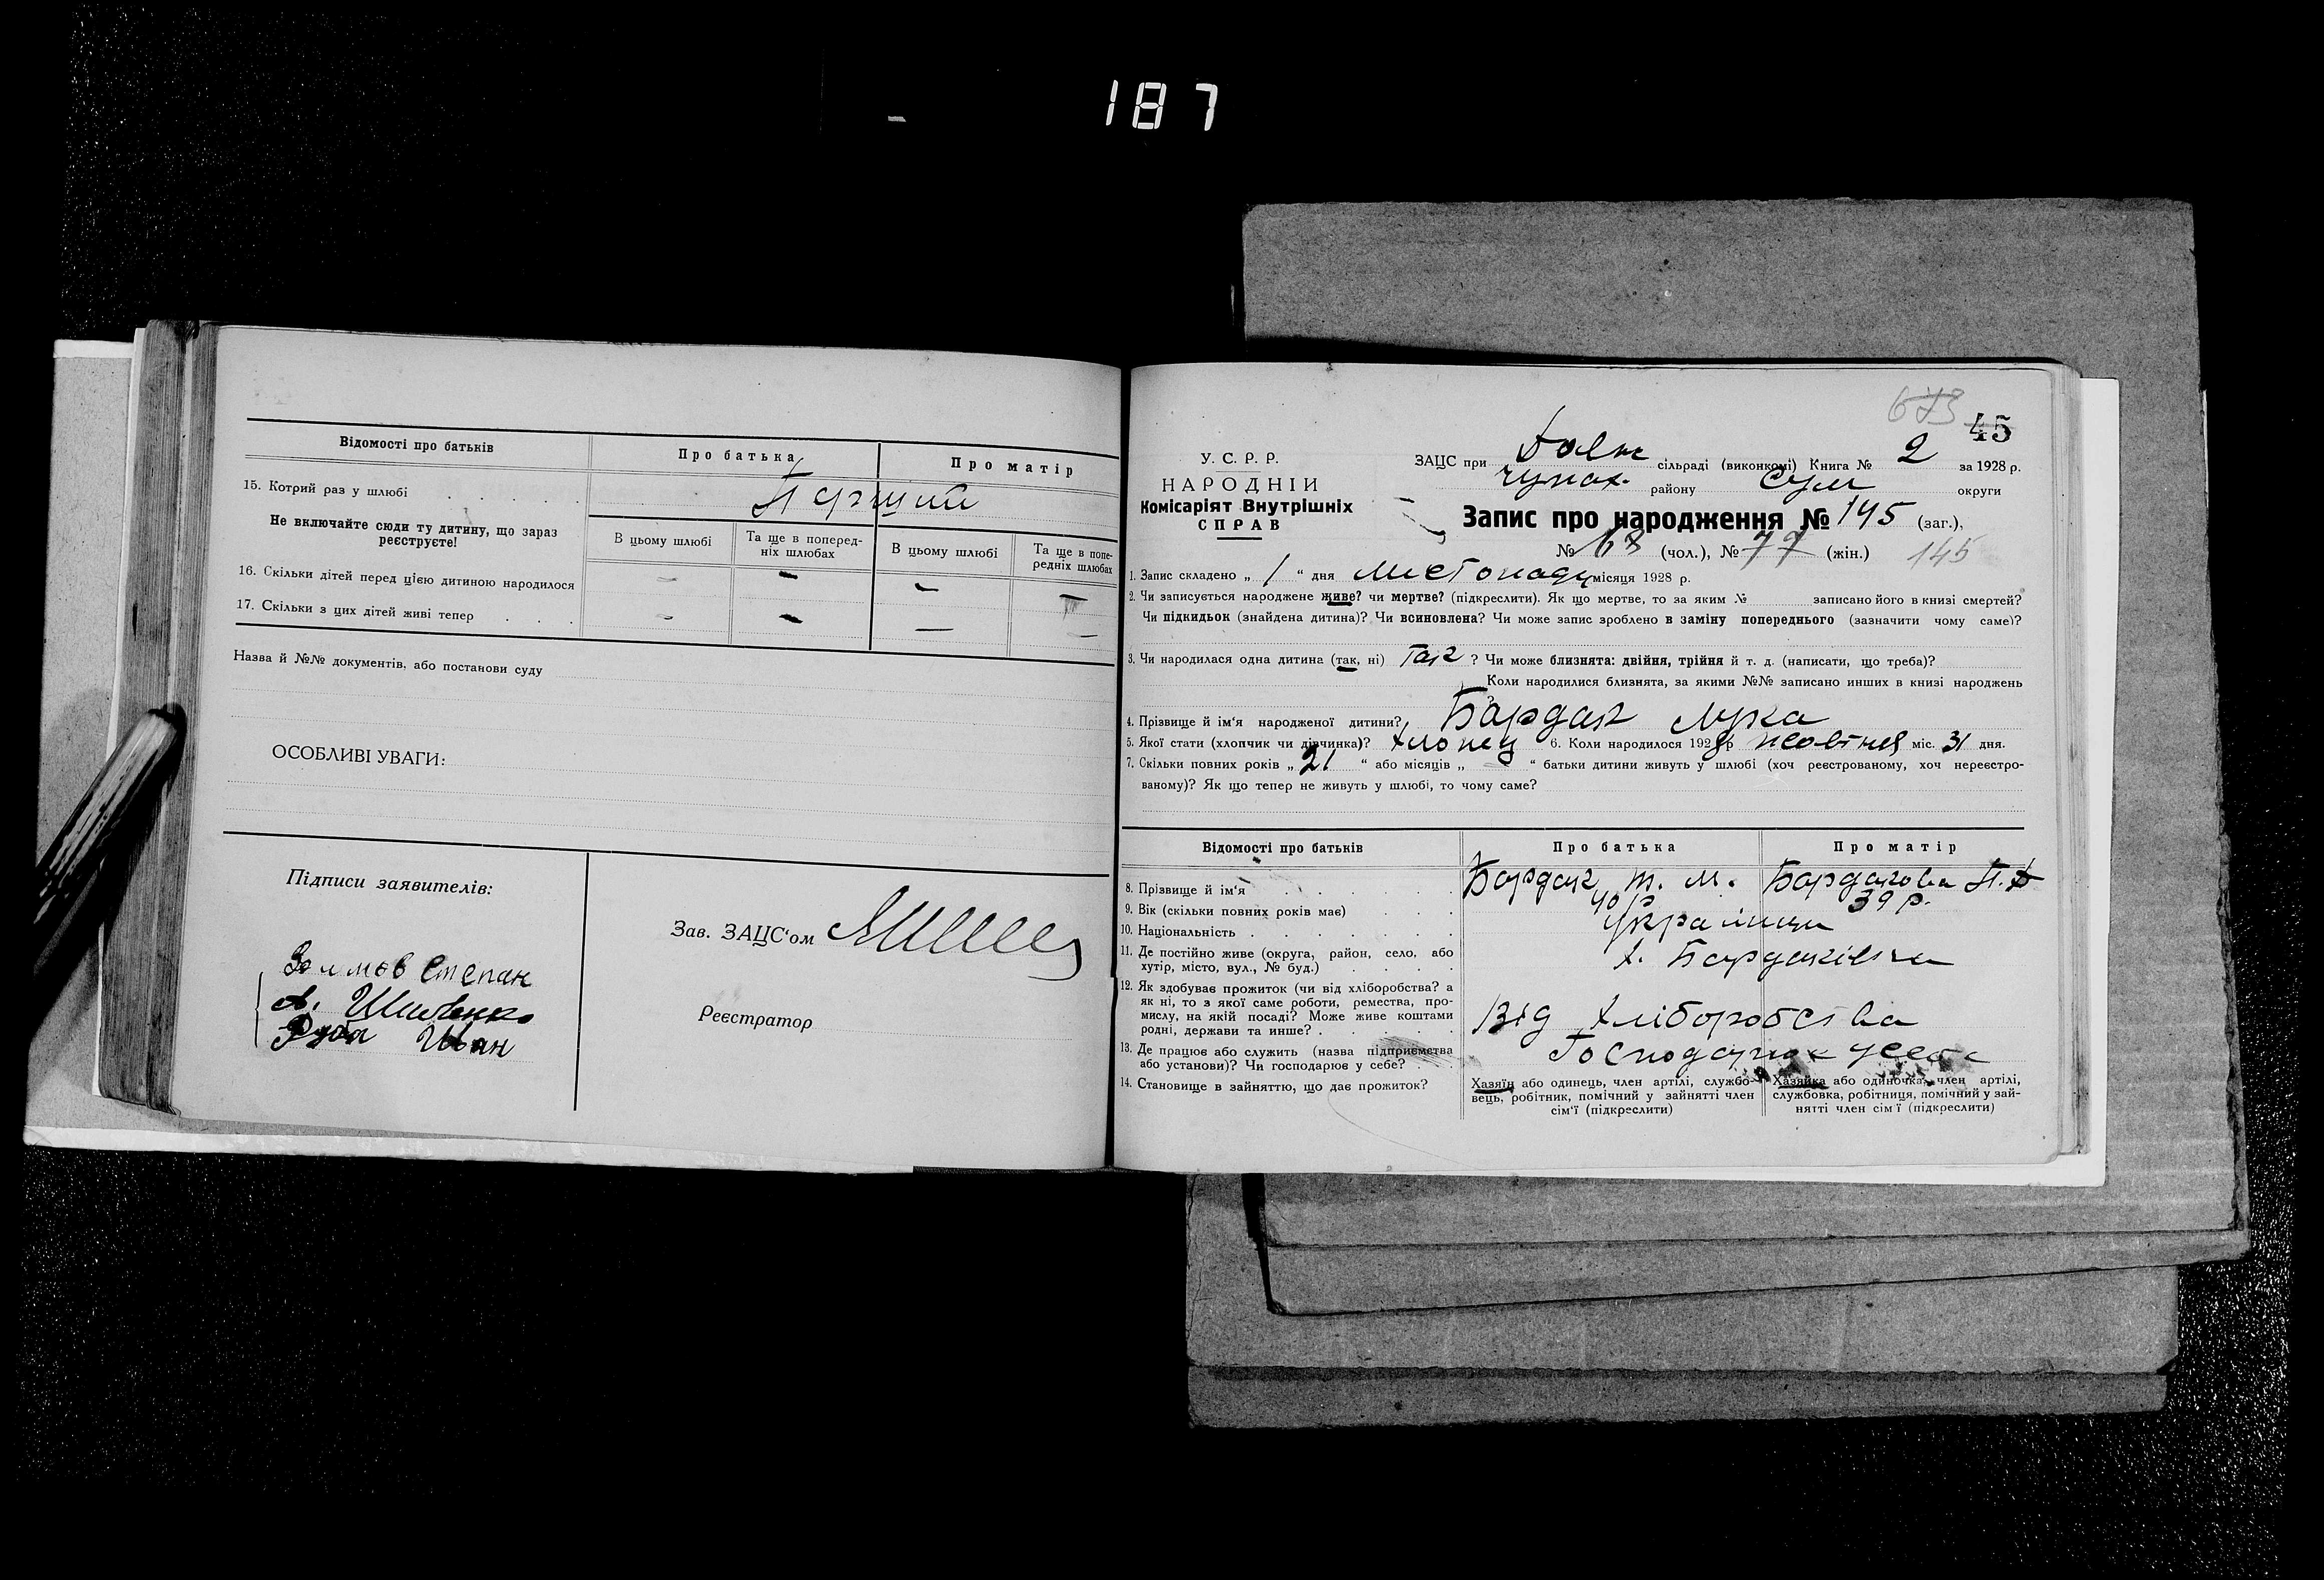 187
Відомості про батьків
Про батька
Про матір
15. Котрий раз у шлюбі
Перший
Не включайте сюди ту дитину, що зараз реєструєте!
В цьому шлюбі
Та ще в поперед-
ніх шлюбах
В цьому шлюбі
Та ще в попе-
редніх шлюбах
16. Скільки дітей перед цією дитиною народилося
— — — —
17. Скільки з цих дітей живі тепер
— — — —
Назва й №№ документів, або постанови суду
ОСОБЛИВІ УВАГИ:
Підписи заявителів:
Степан
Шевченко
Руба Иван
Зав. ЗАЦС'ом
Реєстратор
673
45
У. С. Р. Р.
НАРОДНІЙ
Комісаріят Внутрішніх
СПРАВ
ЗАЦС при сільраді (виконкомі) Книга № 2 за 1928 р.
чупах. району Сум округи
Запис про народження № 145 (заг.),
№ 68 (чол.), № 77 (жін.) 145
1. Запис складено „ 1 “ дня листопаду місяця 1928 р.
2. Чи записується народжене живе? чи мертве? (підкреслити). Як що мертве, то за яким № записано його в книзі смертей?
Чи підкидьок (знайдена дитина)? Чи всиновлена? Чи може запис зроблено в заміну попереднього (зазначити чому саме)?
3. Чи народилася одна дитина (так, ні) Так ? Чи може близнята: двійня, трійня й т. д. (написати, що треба)?
Коли народилися близнята, за якими №№ записано инших в книзі народжень
?
4. Прізвище й ім'я народженої дитини? Бардак Лука
5. Якої стати (хлопчик чи дівчинка)? Хлопец 6. Коли народилося 1928 р жовтня міс. 31 дня.
7. Скільки повних років „ 21 “ або місяців „ — “ батьки дитини живуть у шлюбі (хоч реєстрованому, хоч нереєстро-
ваному)? Як що тепер не живуть у шлюбі, то чому саме?
Відомості про батьків
Про батька
Про матір
8. Прізвище й ім'я
Бардак Т. М. Бардакова П.
9. Вік (скільки повних років має)
40 р 39 р.
10. Національність
Українци
11. Де постійно живе (округа, район, село, або
хутір, місто, вул., № буд.)
х. Бардаківка
12. Як здобуває прожиток (чи від хліборобства? а
як ні, то з якої саме роботи, ремества, про-
мислу, на якій посаді? Може живе коштами
родні, держави та инше?
Від Хліборобства
13. Де працює або служить (назва підприємства
або установи)? Чи господарює у себе?
14. Становище в зайняттю, що дає прожиток?
Хазяїн або одинець, член артілі, службо-
вець, робітник, помічний у зайнятті член
сім'ї (підкреслити)
Хазяйка або одиночка, член артілі,
службовка, робітниця, помічний у зай-
нятті член сім'ї (підкреслити)